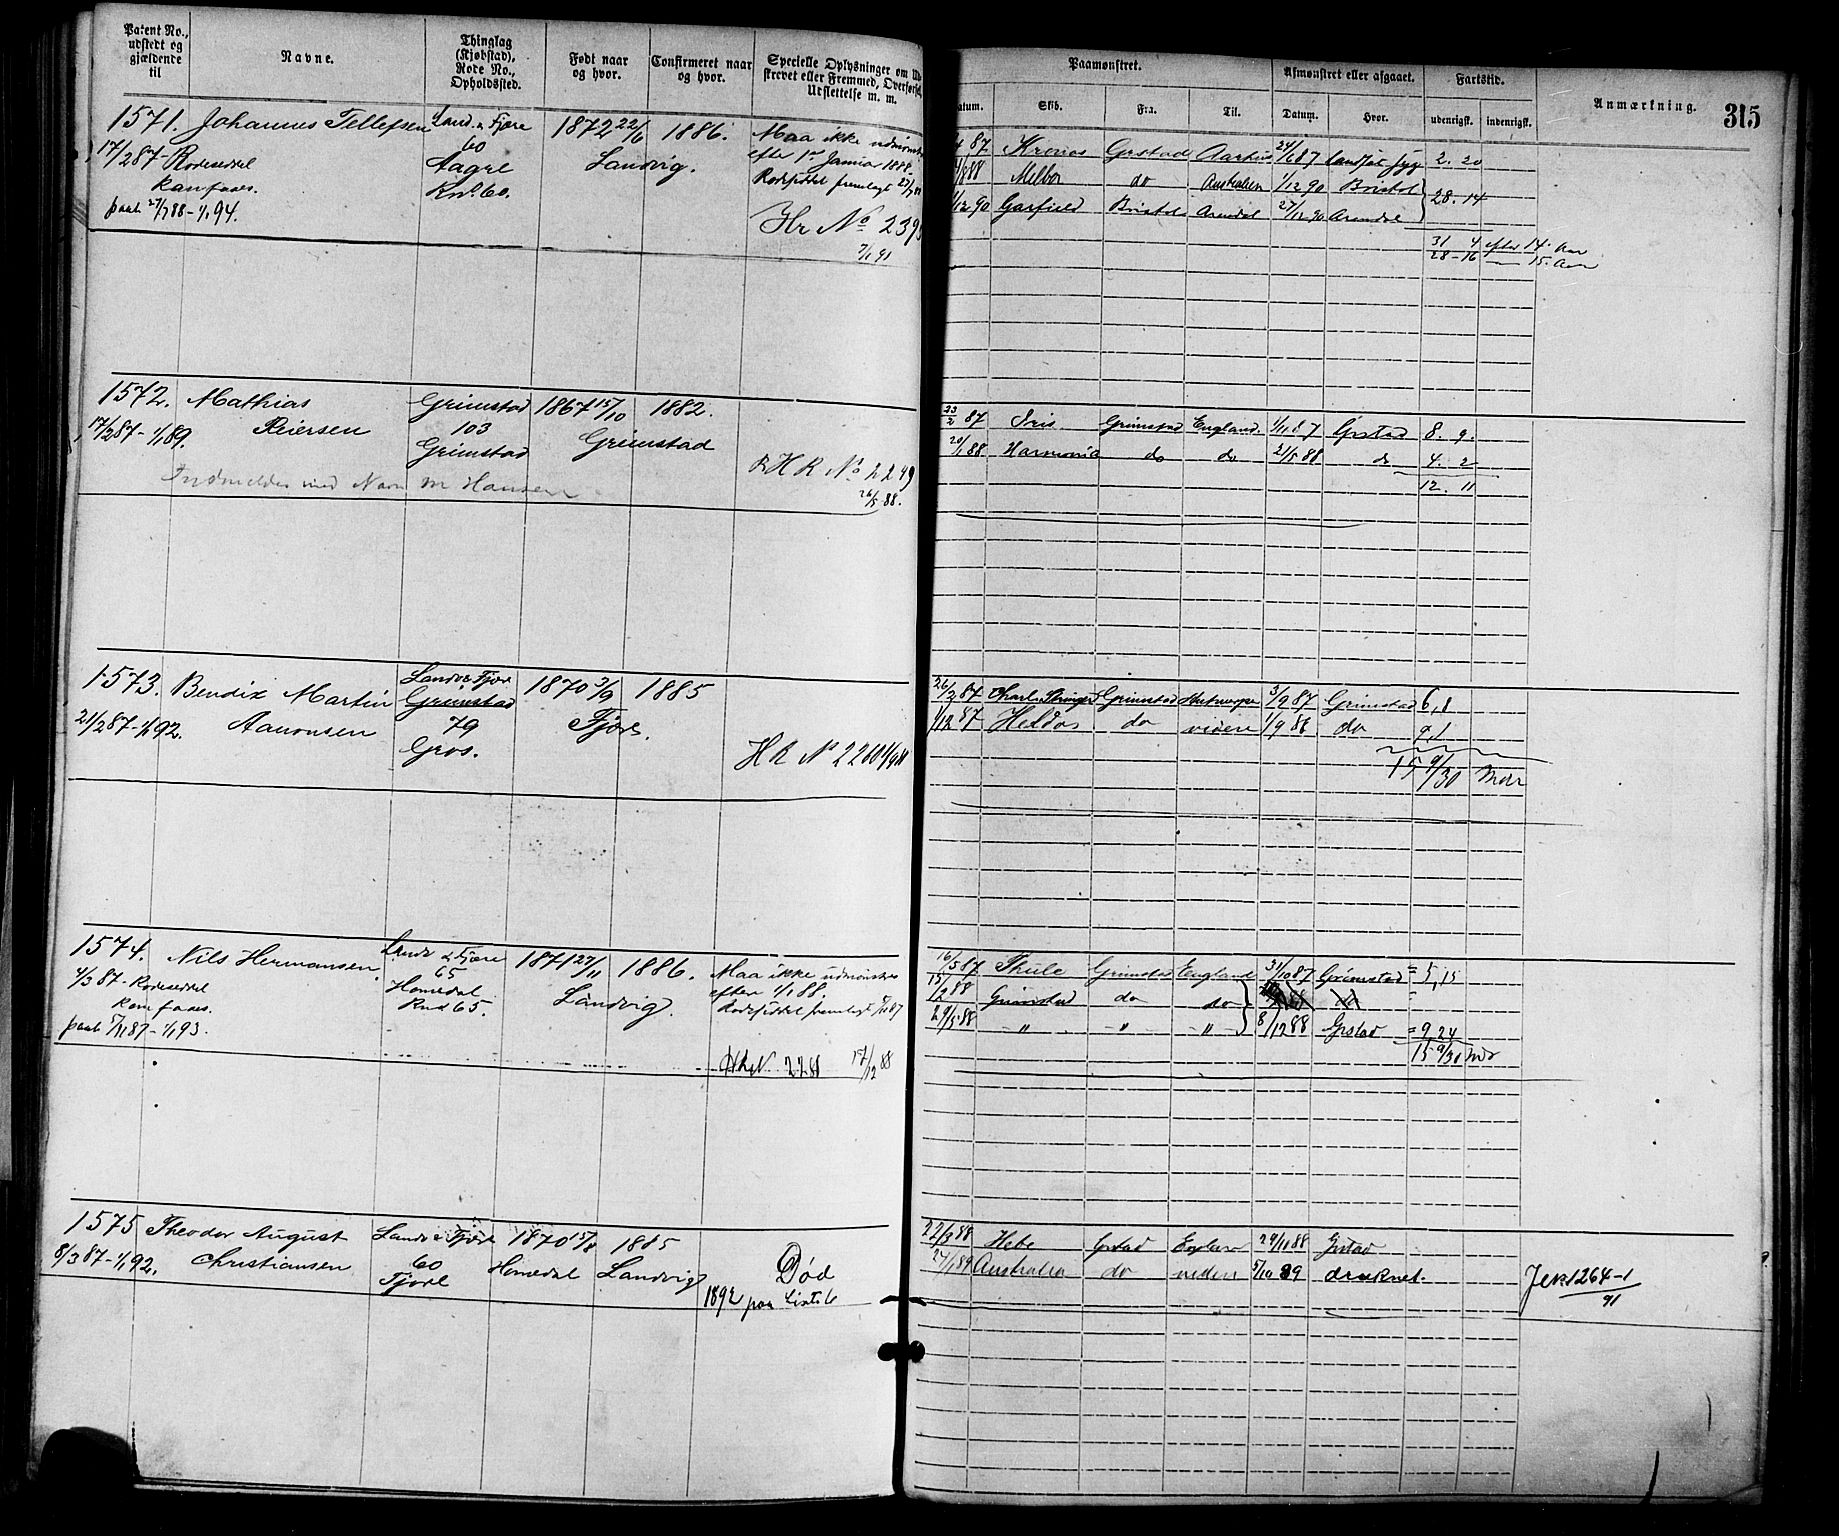 Patent No., udstedt og gjældende til
Navne.
Thinglag (Kjøbstad), Rode No., Opholdssted.
Født naar og hvor.
Confirmeret naar og hvor.
Specielle Oplysninger om
Paamønstret.
Afmønstret eller afgaaet.
Fartstid.
Anmærkning.
315
Skib.
Fra.
Til.
Datum.
Hvor.
udenrigsk.
indenrigsk.
1571. Johannes Tellefsen
Land. & Fjære
60
Aagre
Rn. 60.
1872 22/6 1886.
Landvig.
17/2 87- Rodeseddel
kan faaes.
paab 27/7 88 - 1/1 94.
Maa ikke udmønstres
efter 1ste Januar 1888-
Rodeseddel fremlagt 27/7 88
Hr No 239
7/1 91
87 Kronos Grstad Aarhus 24/6 87 2. 20
88 Melbor do Australien 1/12 90 Bristol
28. 14
1/12 90 Garfield Bristol Arendal 27/12 90 Arendal
31 4 efter 14. Aar
28-16 — 15. Aar
1572. Mathias
Reiersen
17/2 87 - 1/1 89.
Grimstad
103
Grimstad
1867 15/10 1882.
Grimstad
Indmeldes med Navn M Hansen
H R No 2249
26/5 88.
23/2 87 Iris Grimstad England. 1/11 87 Grstad 8. 9.
20/1 88 Harmonia do do 21/5 88 do 4. 2
12. 11
1573. Bendix Martin
Aanonsen
21/2 87 - 1/1 92.
Landv & Fjære
Grimstad
79
Gros.
1870 3/9 1885
Fjære.
H R No 2260
26/2 87 Grimstad Antwerpen 3/9 87 Grimstad 6, 8
1/12 87 Heldos do videre 1/9 88 do 9, 1
15 9/30 Mdr
1574. Nils Hermansen.
4/3 87- Rodeseddel
kan faaes.
paab 5/11 87 - 1/1 93.
Landv & Fjære
65
Homedal
Rnd 65.
1871 27/11 1886.
Landvig.
Maa ikke udmønstres
efter 1/1 88.
Rodeseddel fremlagt 5/11 87
17/12 88
16/5 87 Thule Grimstad England 31/10 87 Grimstad = 5, 15
15/2 88 Grimstad do do do "
29/5 88 — " — " — " 8/12 88 Grstad = 9, 24
15 9/30 Mdr
1575 Theodor August
Christiansen
8/3 87 - 1/1 92.
Landv & Fjære
60
Fjære
1870 15/8 1885
Homedal Landvig
Død
1892 paa
22/3 88 Hebe Grstad England 29/11 88 Grstad
27/1 89 Australia do videre 5/10 89 druknet.
1264-1
91